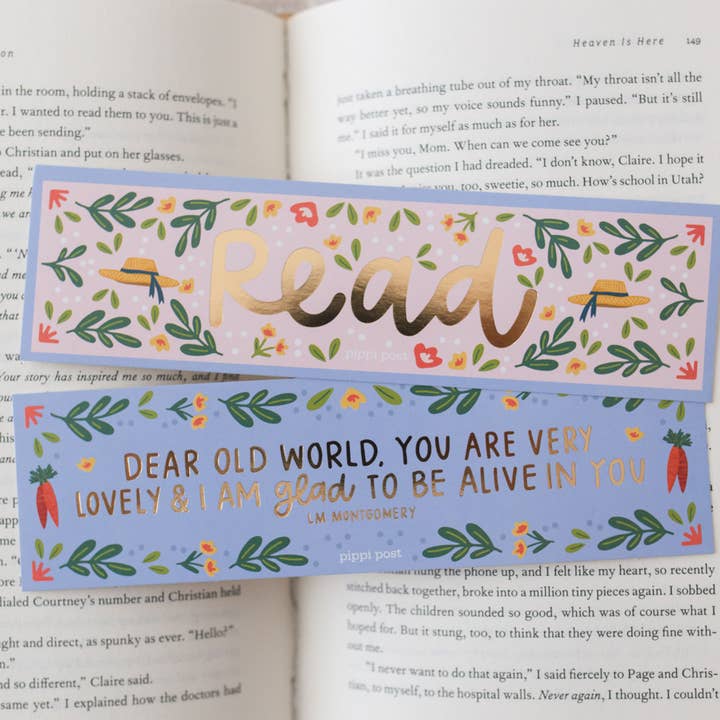 on
in the room, holding a stack of envelopes. "I
r. I wanted to read them to you. This is just a
e been sending."
Christian and put on her glasses.
ead, "
Heaven Is Here 149
just taken a breathing tube out of my throat. "My throat isn't all the
way better yet, so my voice sounds funny." I paused. "But it's still
me." I said it for myself as much as for her.
"I miss you, Mom. When can we come see you?"
It was the question I had dreaded. "I don't know, Claire. I hope it
you, too, sweetie, so much. How's school in Utah?
Read
pippi post
Your story has inspired me so much, and I call
DEAR OLD WORLD, YOU ARE VERY
LOVELY & I AM glad TO BE ALIVE IN YOU
LM MONTGOMERY
pippi post
dialed Courtney's number and Christian held
ght and direct, as spunky as ever. "Hello?"
nd so different," Claire said.
same yet." I explained how the doctors had
hung the phone up, and I felt like my heart, so recently
stitched back together, broke into a million tiny pieces again. I sobbed
openly. The children sounded so good, which was of course what I
hoped for. But it stung, too, to think that they were doing fine with-
out me.
"I never want to do that again," I said fiercely to Page and Chris-
tian, to myself, to the hospital walls. Never again, I thought. I couldn't